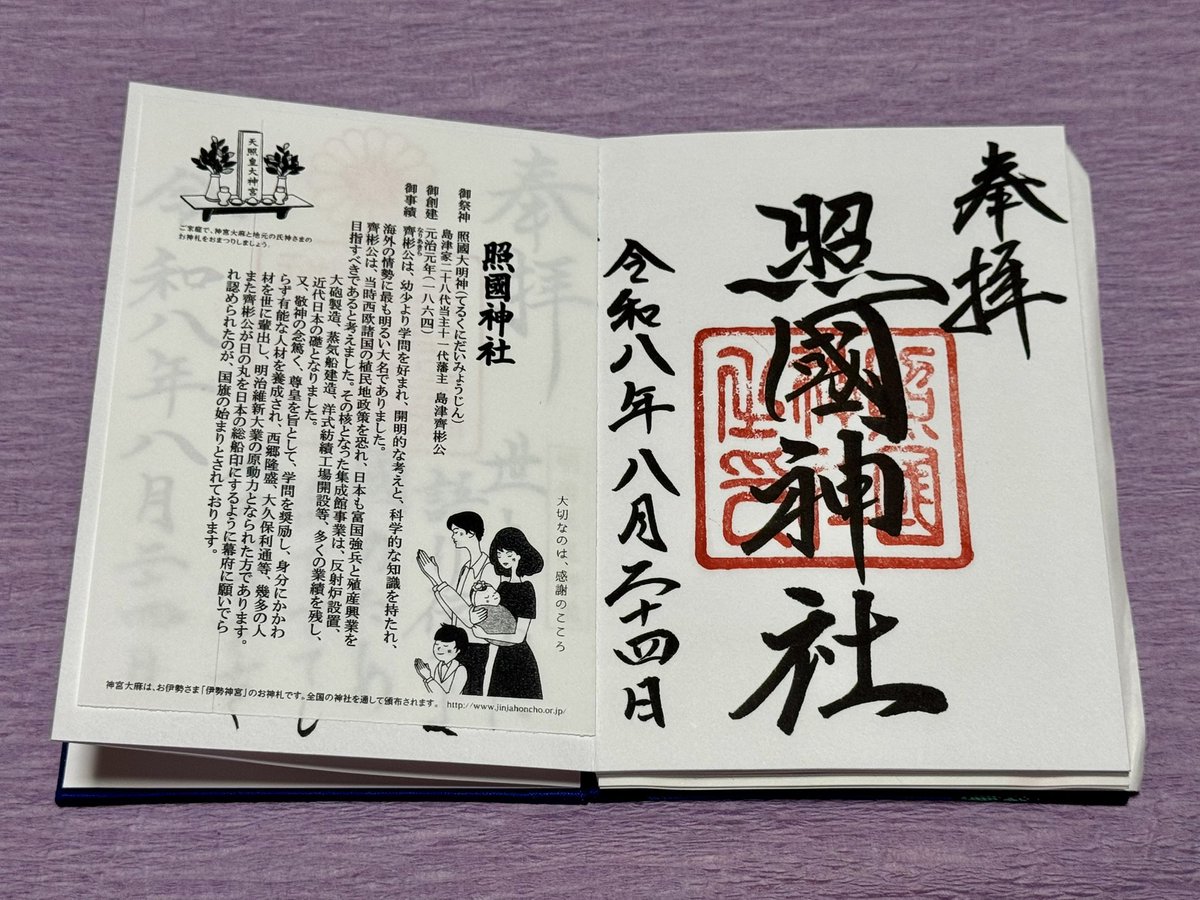 奉拝
照國神社
令和八年八月二十四日
照國神社
御祭神 照國大明神(てるくにだいみょうじん)
島津家二十八代当主十一代藩主 島津齊彬公
御創建 元治元年(一八六四)
御事績 齊彬公は、幼少より学問を好まれ、開明的な考えと、科学的な知識を持たれ、
なりあきら
海外の情勢に最も明るい大名でありました。
齊彬公は、当時西欧諸国の植民地政策を恐れ、日本も富国強兵と殖産興業を
目指すべきであると考えました。その核となった集成館事業は、反射炉設置、
大砲製造、蒸気船建造、洋式紡績工場開設等、多くの業績を残し、
近代日本の礎となりました。
又、敬神の念篤く、尊皇を旨として、学問を奨励し、身分にかかわ
らず有能な人材を養成され、西郷隆盛、大久保利通等、幾多の人
材を世に輩出し、明治維新大業の原動力となられた方であります。
また齊彬公が日の丸を日本の総船印にするように幕府に願いでら
れ認められたのが、国旗の始まりとされております。
天照皇大神宮
ご家庭で、神宮大麻と地元の氏神さまの
お神札をおまつりしましょう。
大切なのは、感謝のこころ
神宮大麻は、お伊勢さま「伊勢神宮」のお神札です。全国の神社を通して頒布されます。 http://www.jinjahoncho.or.jp/